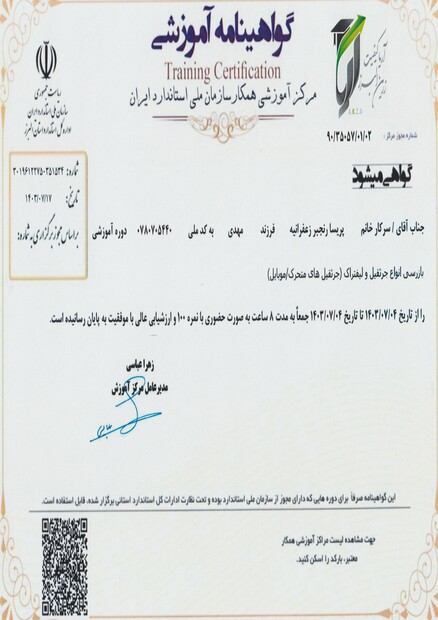 گواهینامه آموزشی
Training Certification
مرکز آموزشی همکار سازمان ملی استاندارد ایران
ریاست جمهوری
سازمان ملی استاندارد ایران
اداره کل استاندارد استان البرز
آریا کیفیت
زرین البرز
شماره مجوز مرکز: ۹۰/۳۵۰۵۷/۰۱/۰۲
شماره: ۳۵۱۵۳۴-۳۰۱۹۶۱۲۲۷۵
تاریخ: ۱۴۰۳/۰۷/۱۷
براساس مجوز برگزاری به شماره:
گواهی میشود
جناب آقای / سرکار خانم پریسا رنجبر زعفرانیه فرزند مهدی به کد ملی ۰۷۸۰۷۰۵۴۴۰ دوره آموزشی
بازرسی انواع جرثقیل و لیفتراک (جرثقیل های متحرک/موبایل)
را از تاریخ ۱۴۰۳/۰۷/۰۴ تا تاریخ ۱۴۰۳/۰۷/۰۴ جمعاً به مدت ۸ ساعت به صورت حضوری با نمره ۱۰۰ و ارزشیابی عالی با موفقیت به پایان رسانیده است.
زهرا عباسی
مدیرعامل مرکز آموزش
این گواهینامه صرفاً برای دوره هایی که دارای مجوز از سازمان ملی استاندارد بوده و تحت نظارت ادارات کل استاندارد استانی برگزار شده، قابل استفاده است.
جهت مشاهده لیست مراکز آموزشی همکار
معتبر، بارکد را اسکن کنید.